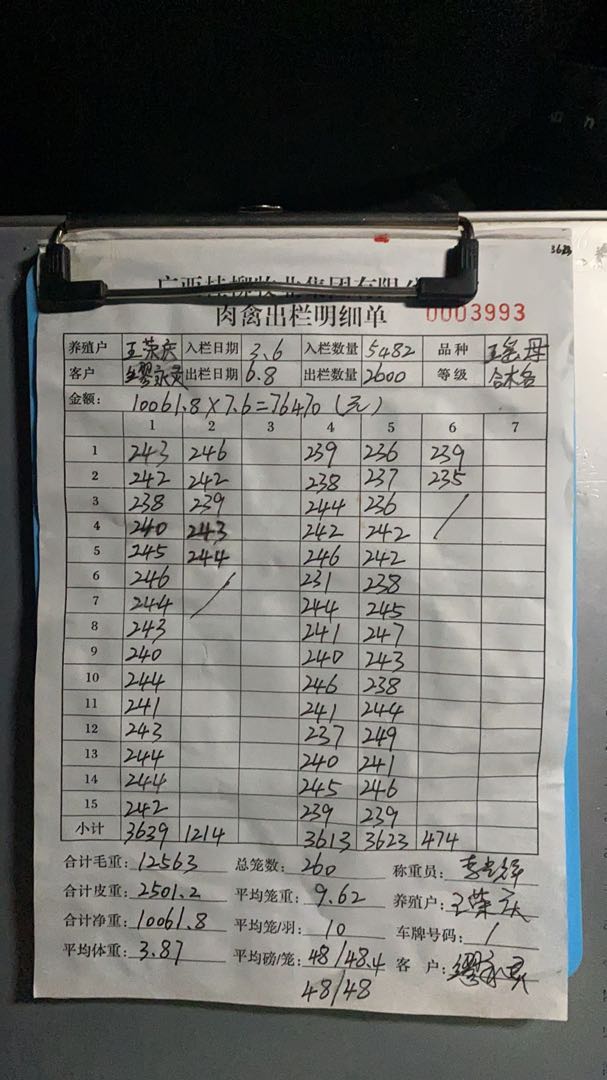 3623
肉禽出栏明细单 0003993
养殖户 王荣庆 入栏日期 3.6 入栏数量 5482 品种
客户 缪永灵 出栏日期 6.8 出栏数量 2600 等级
金额: 10061.8×7.6=76470(元)
1 2 3 4 5 6 7
1 243 246 239 236 239
2 242 242 238 237 235
3 238 239 244 236 /
4 240 243 242 242
5 245 244 246 242
6 246 / 231 238
7 244 244 245
8 243 241 247
9 240 240 243
10 244 246 238
11 241 241 244
12 243 237 249
13 244 240 241
14 244 245 246
15 242 239 239
小计 3639 1214 3613 3623 474
合计毛重: 12563 总笼数: 260 称重员:
合计皮重: 2501.2 平均笼重: 9.62 养殖户: 王荣庆
合计净重: 10061.8 平均笼/羽: 10 车牌号码: /
平均体重: 3.87 平均磅/笼: 48/48.4 客 户: 缪永灵
48/48